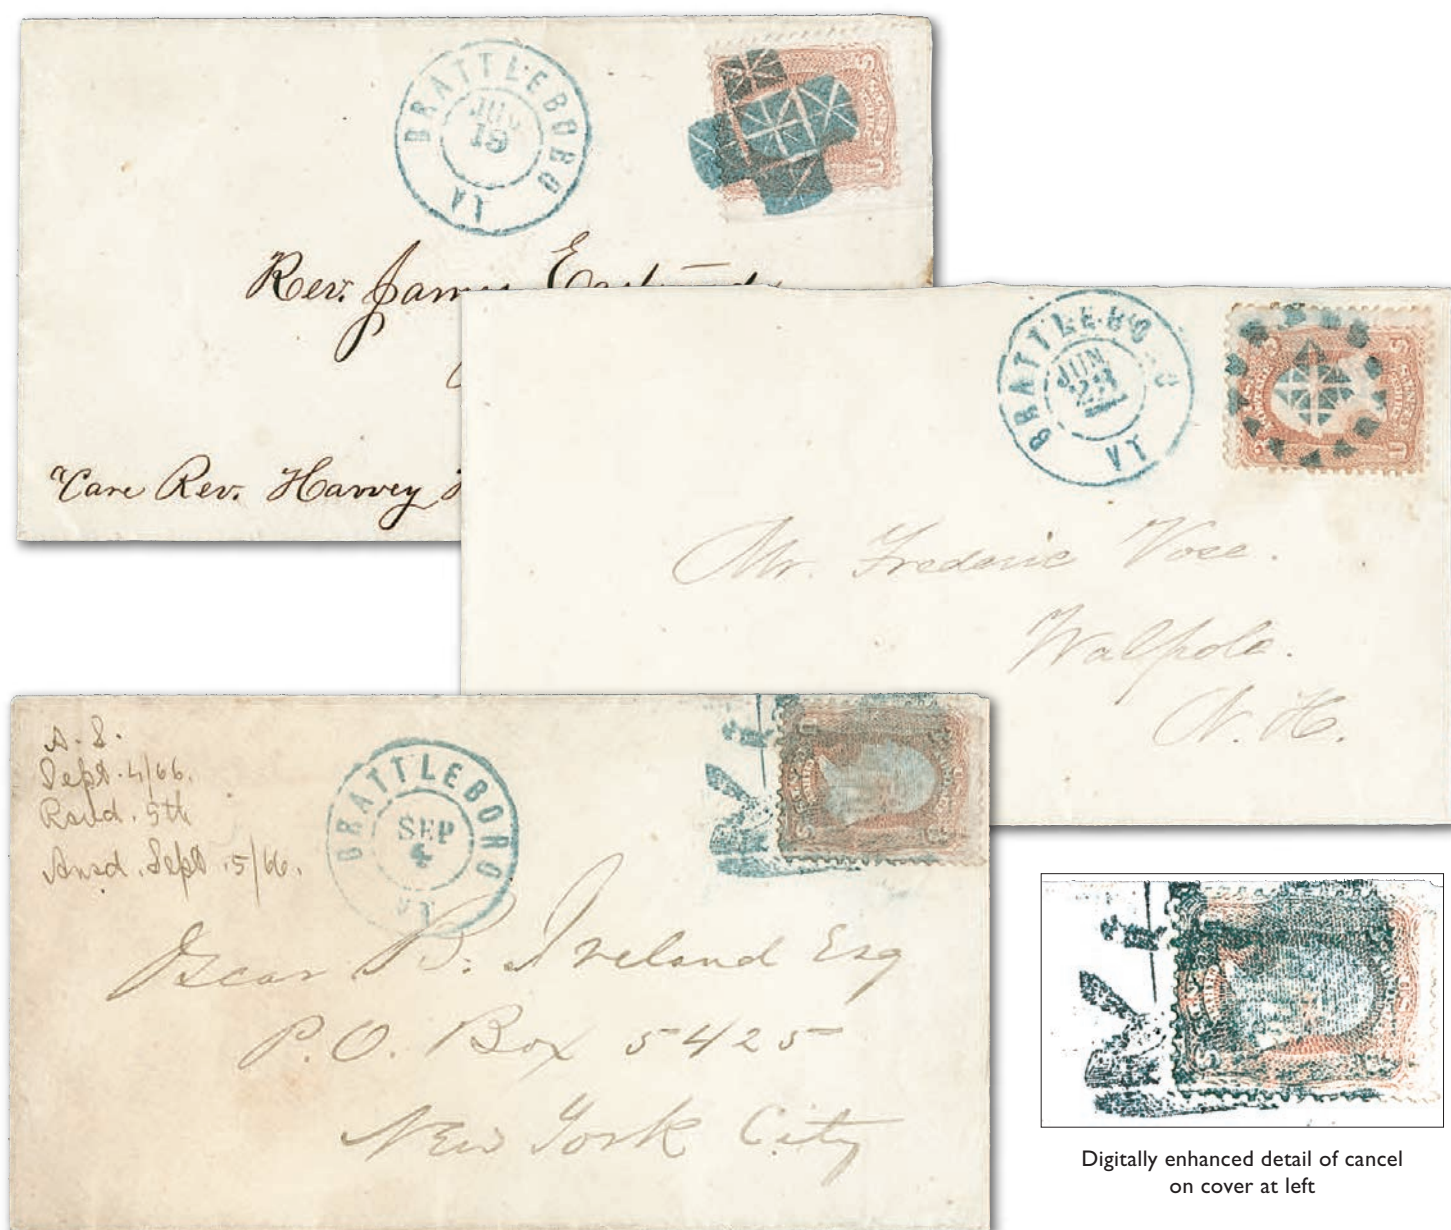 BRATTLEBORO
JUN
19
VT
Rev. James
"Care Rev. Harvey
BRATTLEBO O
JUN
28
VT
Mr. Frederic Vose.
Walpole.
N. H.
A. S.
Sept. 4/66.
Recd. 5th
Ansd. Sept. 5/66.
BRATTLEBORO
SEP
4
VT
Oscar B. Ireland Esq
P.O. Box 5425
New York City
Digitally enhanced detail of cancel
on cover at left